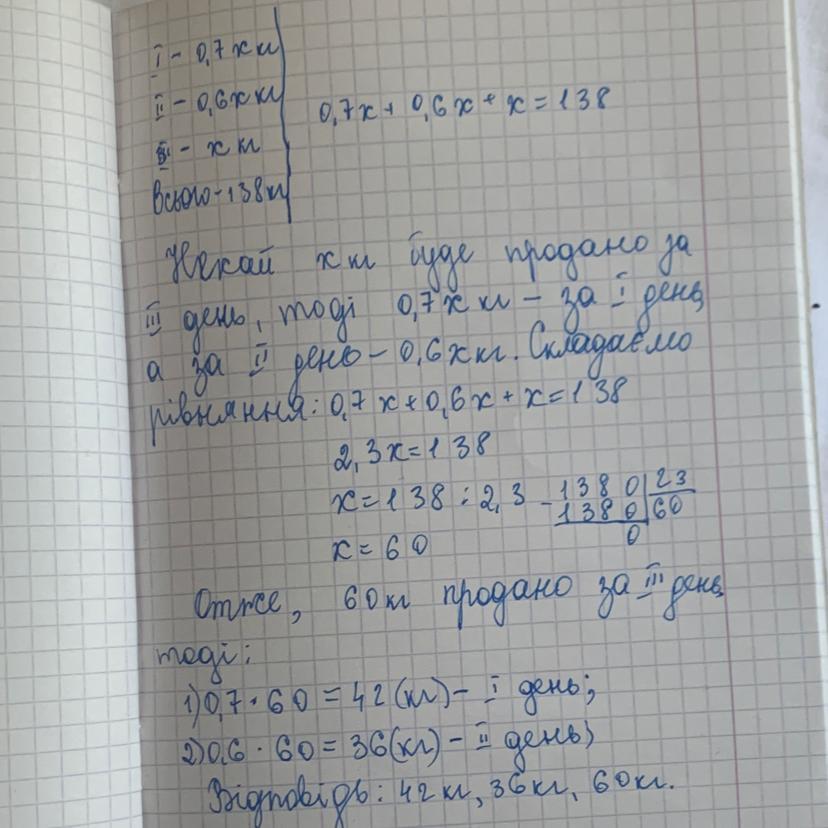 I - 0,7x кг
II - 0,6x кг
0,7x + 0,6x + x = 138
III - x кг
Всього - 138 кг
Нехай x кг буде продано за
III день, тоді 0,7x кг - за I день,
а за II день - 0,6x кг. Складаємо
рівняння: 0,7x + 0,6x + x = 138
2,3x = 138
x = 138 : 2,3
- 1380 | 23
1380 | 60
0
x = 60
Отже, 60 кг продано за III день,
тоді:
1) 0,7 · 60 = 42 (кг) - I день;
2) 0,6 · 60 = 36 (кг) - II день;
Відповідь: 42 кг, 36 кг, 60 кг.